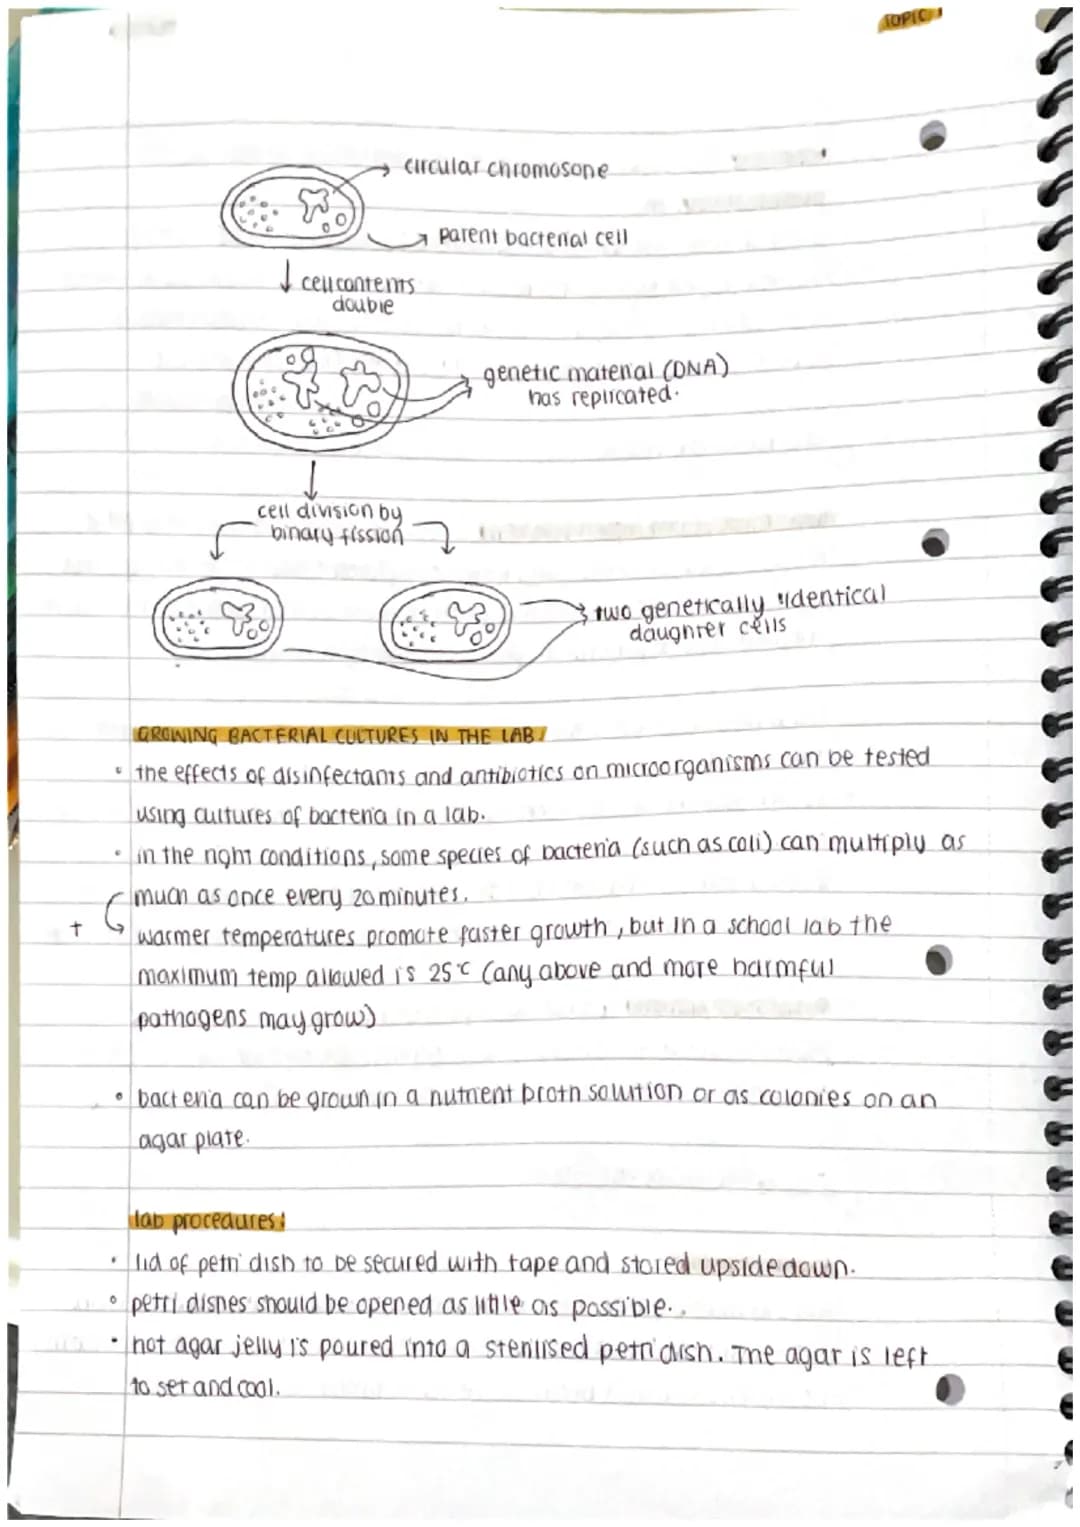 TOPIC 1
circular chromosone
parent bacterial cell
cell contents
double
genetic material (DNA)
has replicated.
cell division by
binary fission
two genetically identical
daughter cells
GROWING BACTERIAL CULTURES IN THE LAB:
• the effects of disinfectants and antibiotics on microorganisms can be tested
using cultures of bacteria in a lab.
• in the right conditions, some species of bacteria (such as coli) can multiply as
much as once every 20 minutes.
+ warmer temperatures promote faster growth, but in a school lab the
maximum temp allowed is 25°C (any above and more harmful
pathogens may grow)
• bacteria can be grown in a nutrient broth solution or as colonies on an
agar plate.
lab procedures:
• lid of petri dish to be secured with tape and stored upside down.
• petri dishes should be opened as little as possible.
• hot agar jelly is poured into a sterilised petri dish. The agar is left
to set and cool.